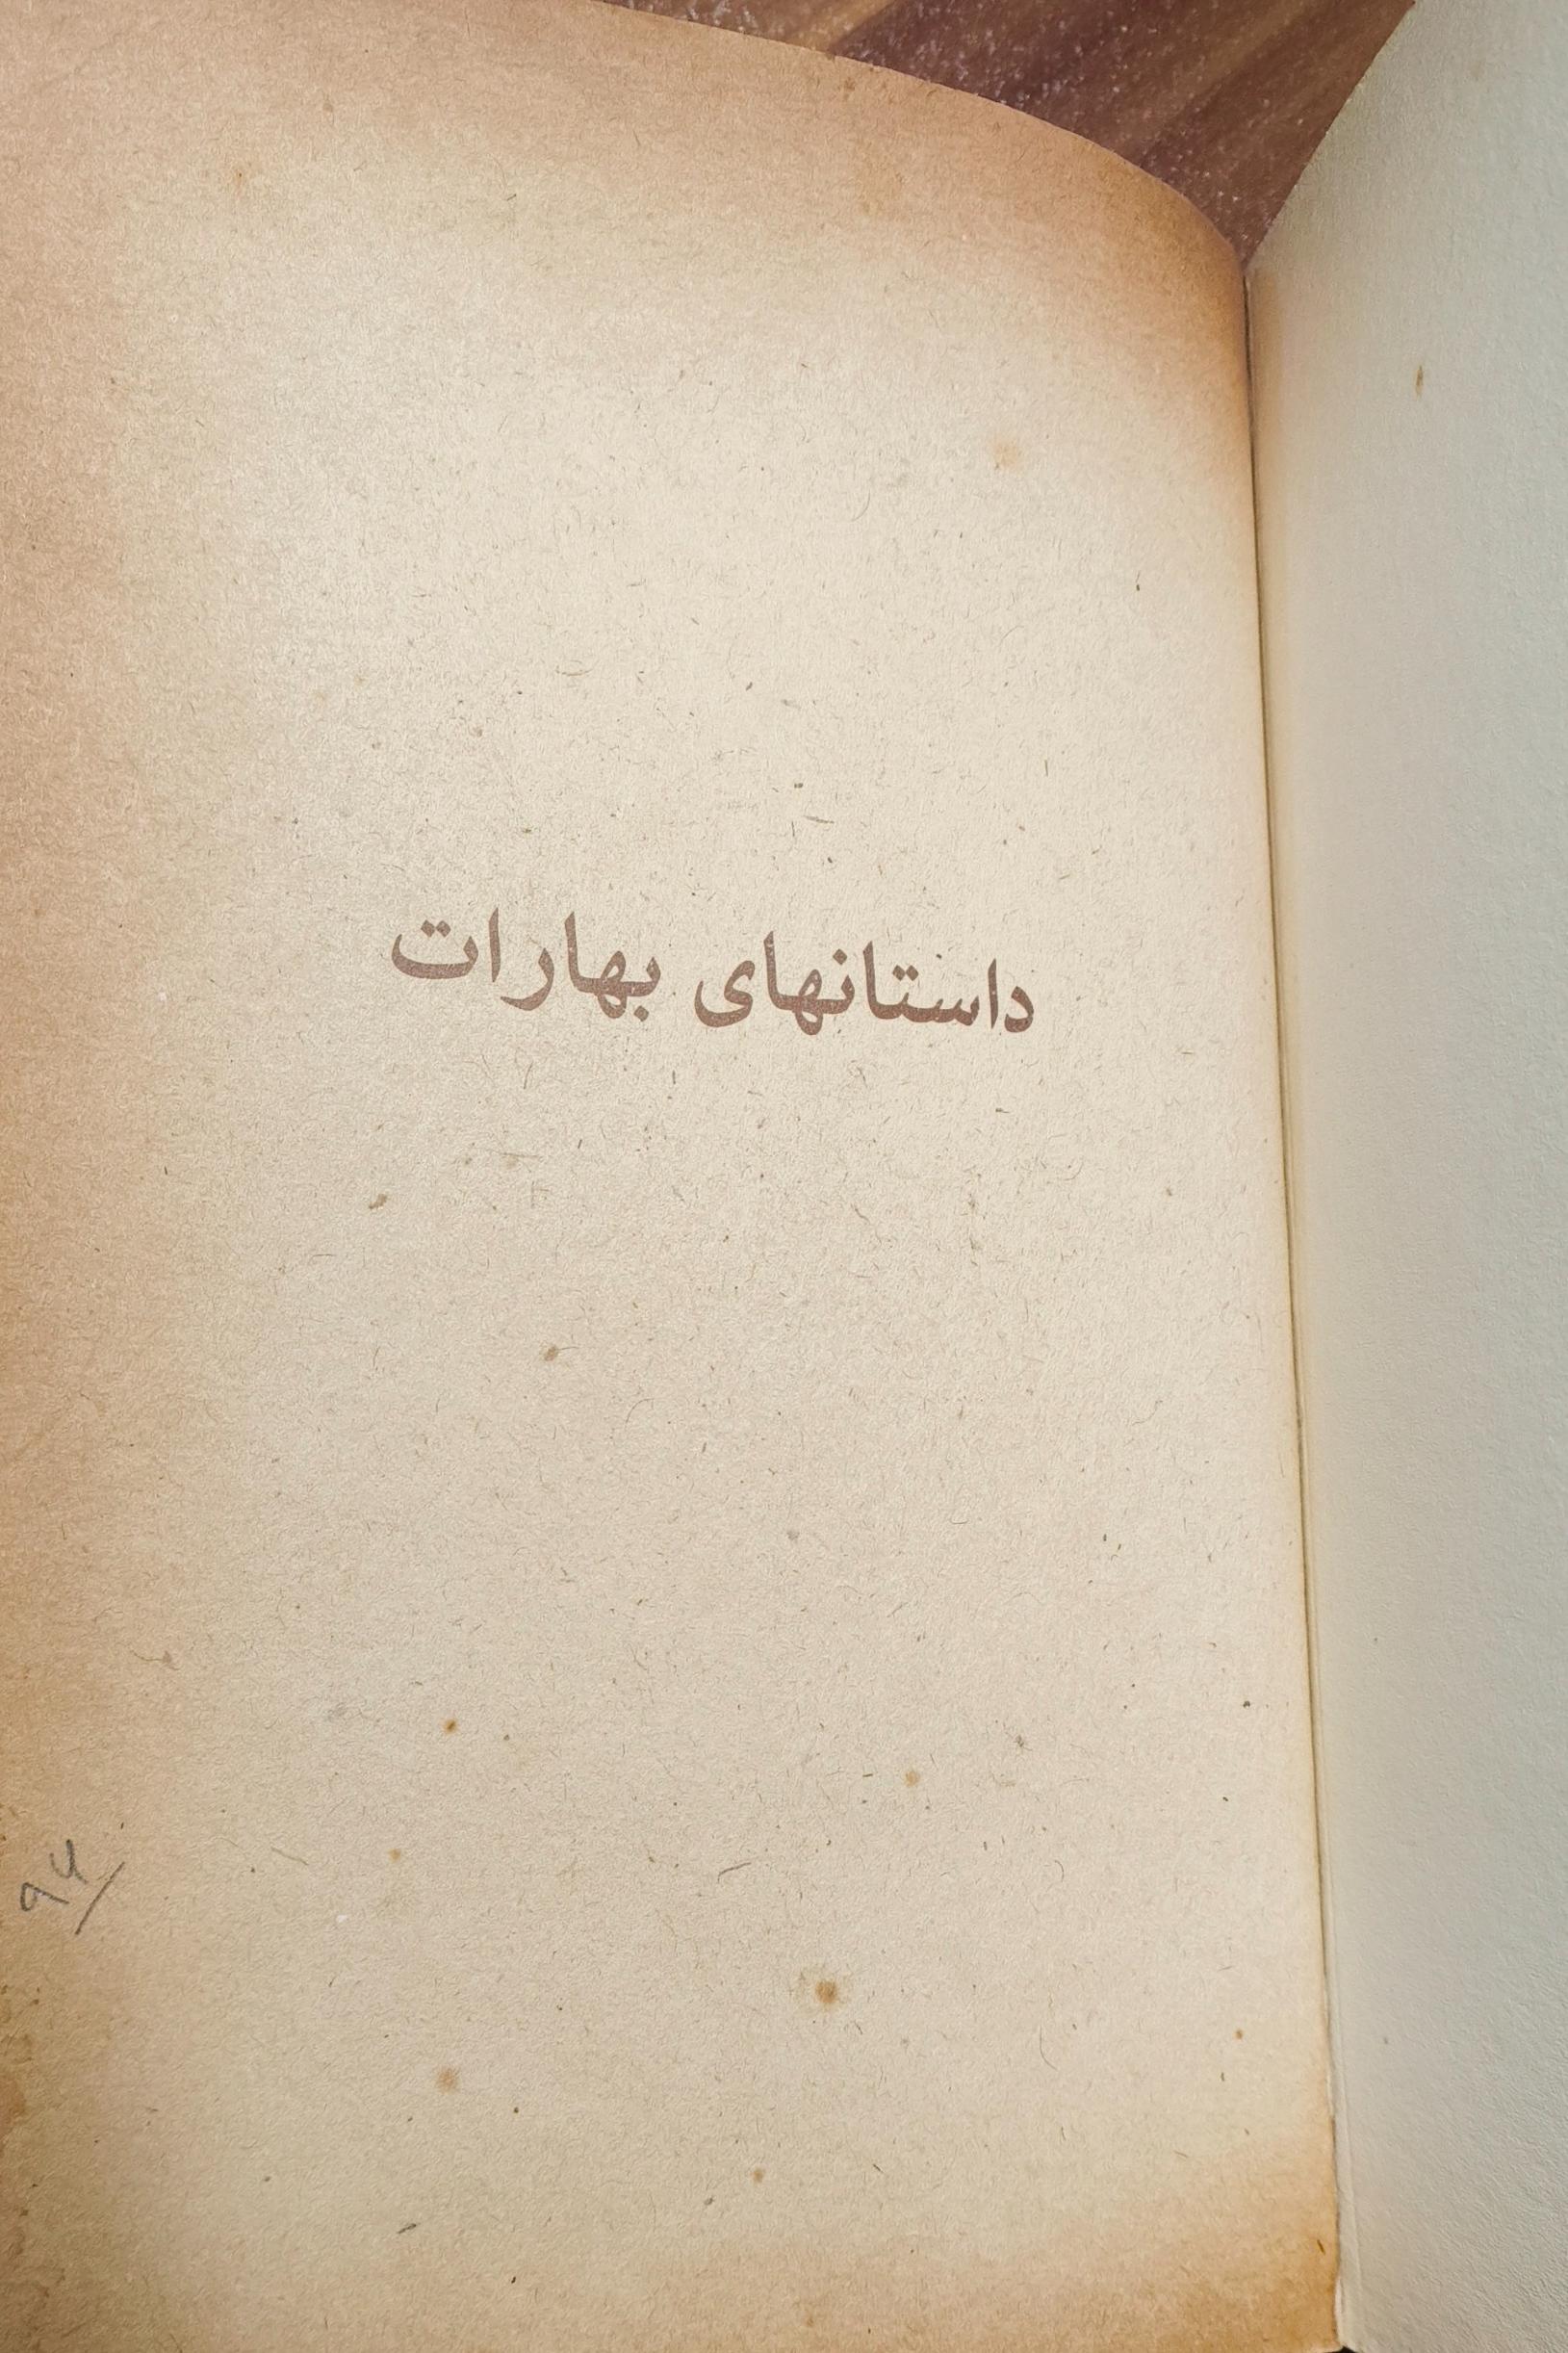 داستانهای بهارات